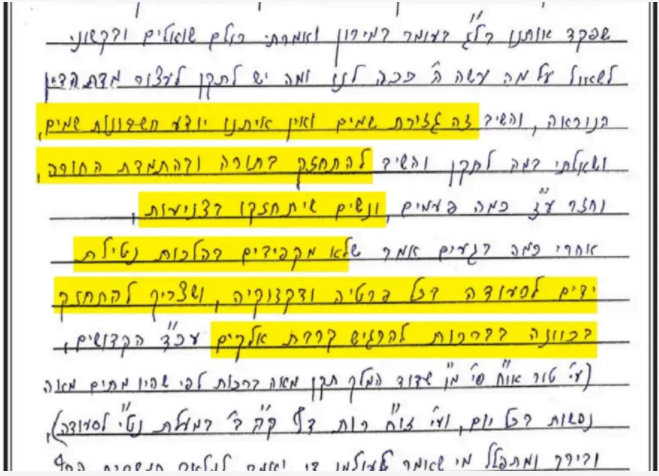 שפקד אותנו בל"ג בעומר במירון ואמרתי כולם שואלים ובקשוני
לשאול על מה עשה ה' ככה לנו ומה יש לתקן לעצור מדת הדין
הנוראה, והשיב זה גזירת שמים ואין איתנו יודע חשבונות שמים,
ושאלתי במה לתקן והשיב להתחזק בתורה ובהתמדת התורה,
וחזר ע"ז כמה פעמים, ונשים שיתחזקו בצניעות,
אחרי כמה רגעים אמר שלא מקפידים בהלכות נטילת
ידים לסעודה בכל פרטיה ודקדוקיה, ושצריך להתחזק
בכוונה בברכות להרגיש קרבת אלקים עכ"ד הקדושים,
(עי' טור או"ח סי' מ"ו שדוד המלך תקן מאה ברכות לפי שהיו מתים מאה
נפשות בכל יום, ועי' זוה"ח רות דף ק"ב ב' במעלת נט"י לסעודה),
ובירך ומתפלל מי שאומר